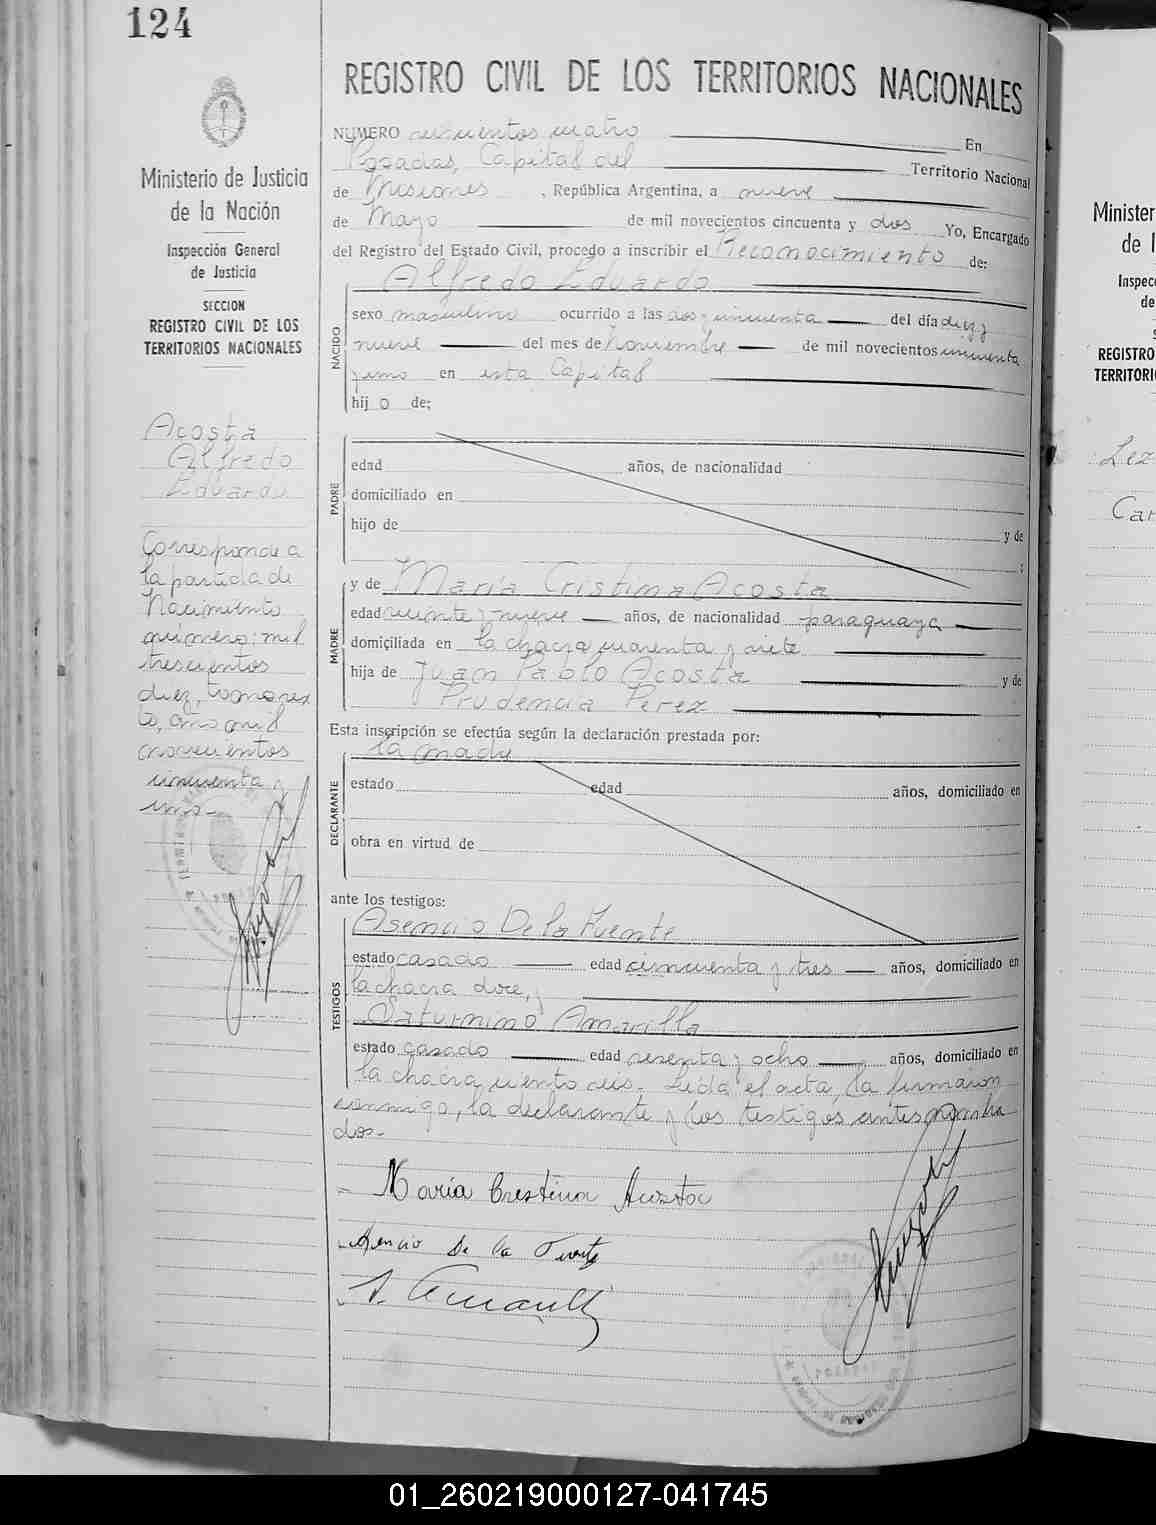 124
REGISTRO CIVIL DE LOS TERRITORIOS NACIONALES
Ministerio de Justicia
de la Nación
Inspección General
de Justicia
SECCION
REGISTRO CIVIL DE LOS
TERRITORIOS NACIONALES
Acosta
Alfredo
Eduardo
Corresponde a
la partida de
Nacimiento
número: mil
trescientos
diez, tomo sex
to, año mil
novecientos
cincuenta y
uno.-
NUMERO cuatro En
Posadas, Capital del Territorio Nacional
de Misiones, República Argentina, a nueve
de Mayo de mil novecientos cincuenta y dos Yo, Encargado
del Registro del Estado Civil, procedo a inscribir el Reconocimiento de:
NACIDO
Alfredo Eduardo
sexo masculino ocurrido a las dos y cincuenta del día diez y
nueve del mes de Noviembre de mil novecientos cincuenta
y uno en esta Capital
hij o de;
PADRE
edad años, de nacionalidad
domiciliado en
hijo de y de
;
MADRE
y de María Cristina Acosta
edad veinte y nueve años, de nacionalidad paraguaya
domiciliada en la chacra cuarenta y siete
hija de Juan Pablo Acosta y de
Prudencia Perez
Esta inscripción se efectúa según la declaración prestada por:
DECLARANTE
la madre
estado edad años, domiciliado en
obra en virtud de
ante los testigos:
TESTIGOS
Asencio De la Fuente
estado casado edad cincuenta y tres años, domiciliado en
la chacra doce, y
Saturnino Amarilla
estado casado edad sesenta y ocho años, domiciliado en
la chacra ciento seis. Leída el acta, la firmaron
conmigo, la declarante y los testigos antes nombra
dos.-
María Cristina Acosta
Asencio De la Fuente
S. Amarilla
Minister
de l
Inspec
de
S
REGISTRO
TERRITORI
Lez
Car
01_260219000127-041745